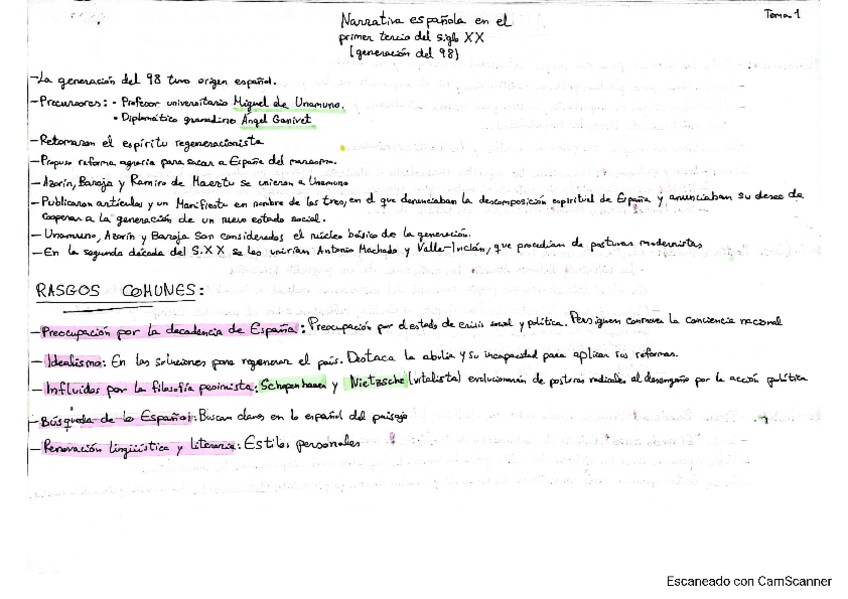 Narrativa española en el
Tema 1
primer tercio del siglo XX
(generación del 98)
-La generación del 98 tuvo origen español.
-Precursores: • Profesor universitario Miguel de Unamuno.
• Diplomático granadino Ángel Ganivet
-Retomaron el espíritu regeneracionista
-Propuso reforma agraria para sacar a España del marasmo.
-Azorín, Baroja y Ramiro de Maeztu se unieron a Unamuno
-Publicaron artículos y un Manifiesto en nombre de los tres, en el que denunciaban la descomposición espiritual de España y anunciaban su deseo de
cooperar a la generación de un nuevo estado social.
-Unamuno, Azorín y Baroja son considerados el núcleo básico de la generación.
-En la segunda década del S.XX se les unirían Antonio Machado y Valle-Inclán, que procedían de posturas modernistas
RASGOS COMUNES:
-Preocupación por la decadencia de España: Preocupación por el estado de crisis social y política. Persiguen conmover la conciencia nacional
-Idealismo: En las soluciones para regenerar el país. Destaca la abulia y su incapacidad para aplicar sus reformas.
-Influidos por la filosofía pesimista: Schopenhauer y Nietzsche (vitalista) evolucionarán de posturas radicales al desengaño por la acción política
-Búsqueda de lo Español: Buscan claves en lo español del paisaje
-Renovación lingüística y literaria: Estilos personales
Escaneado con CamScanner